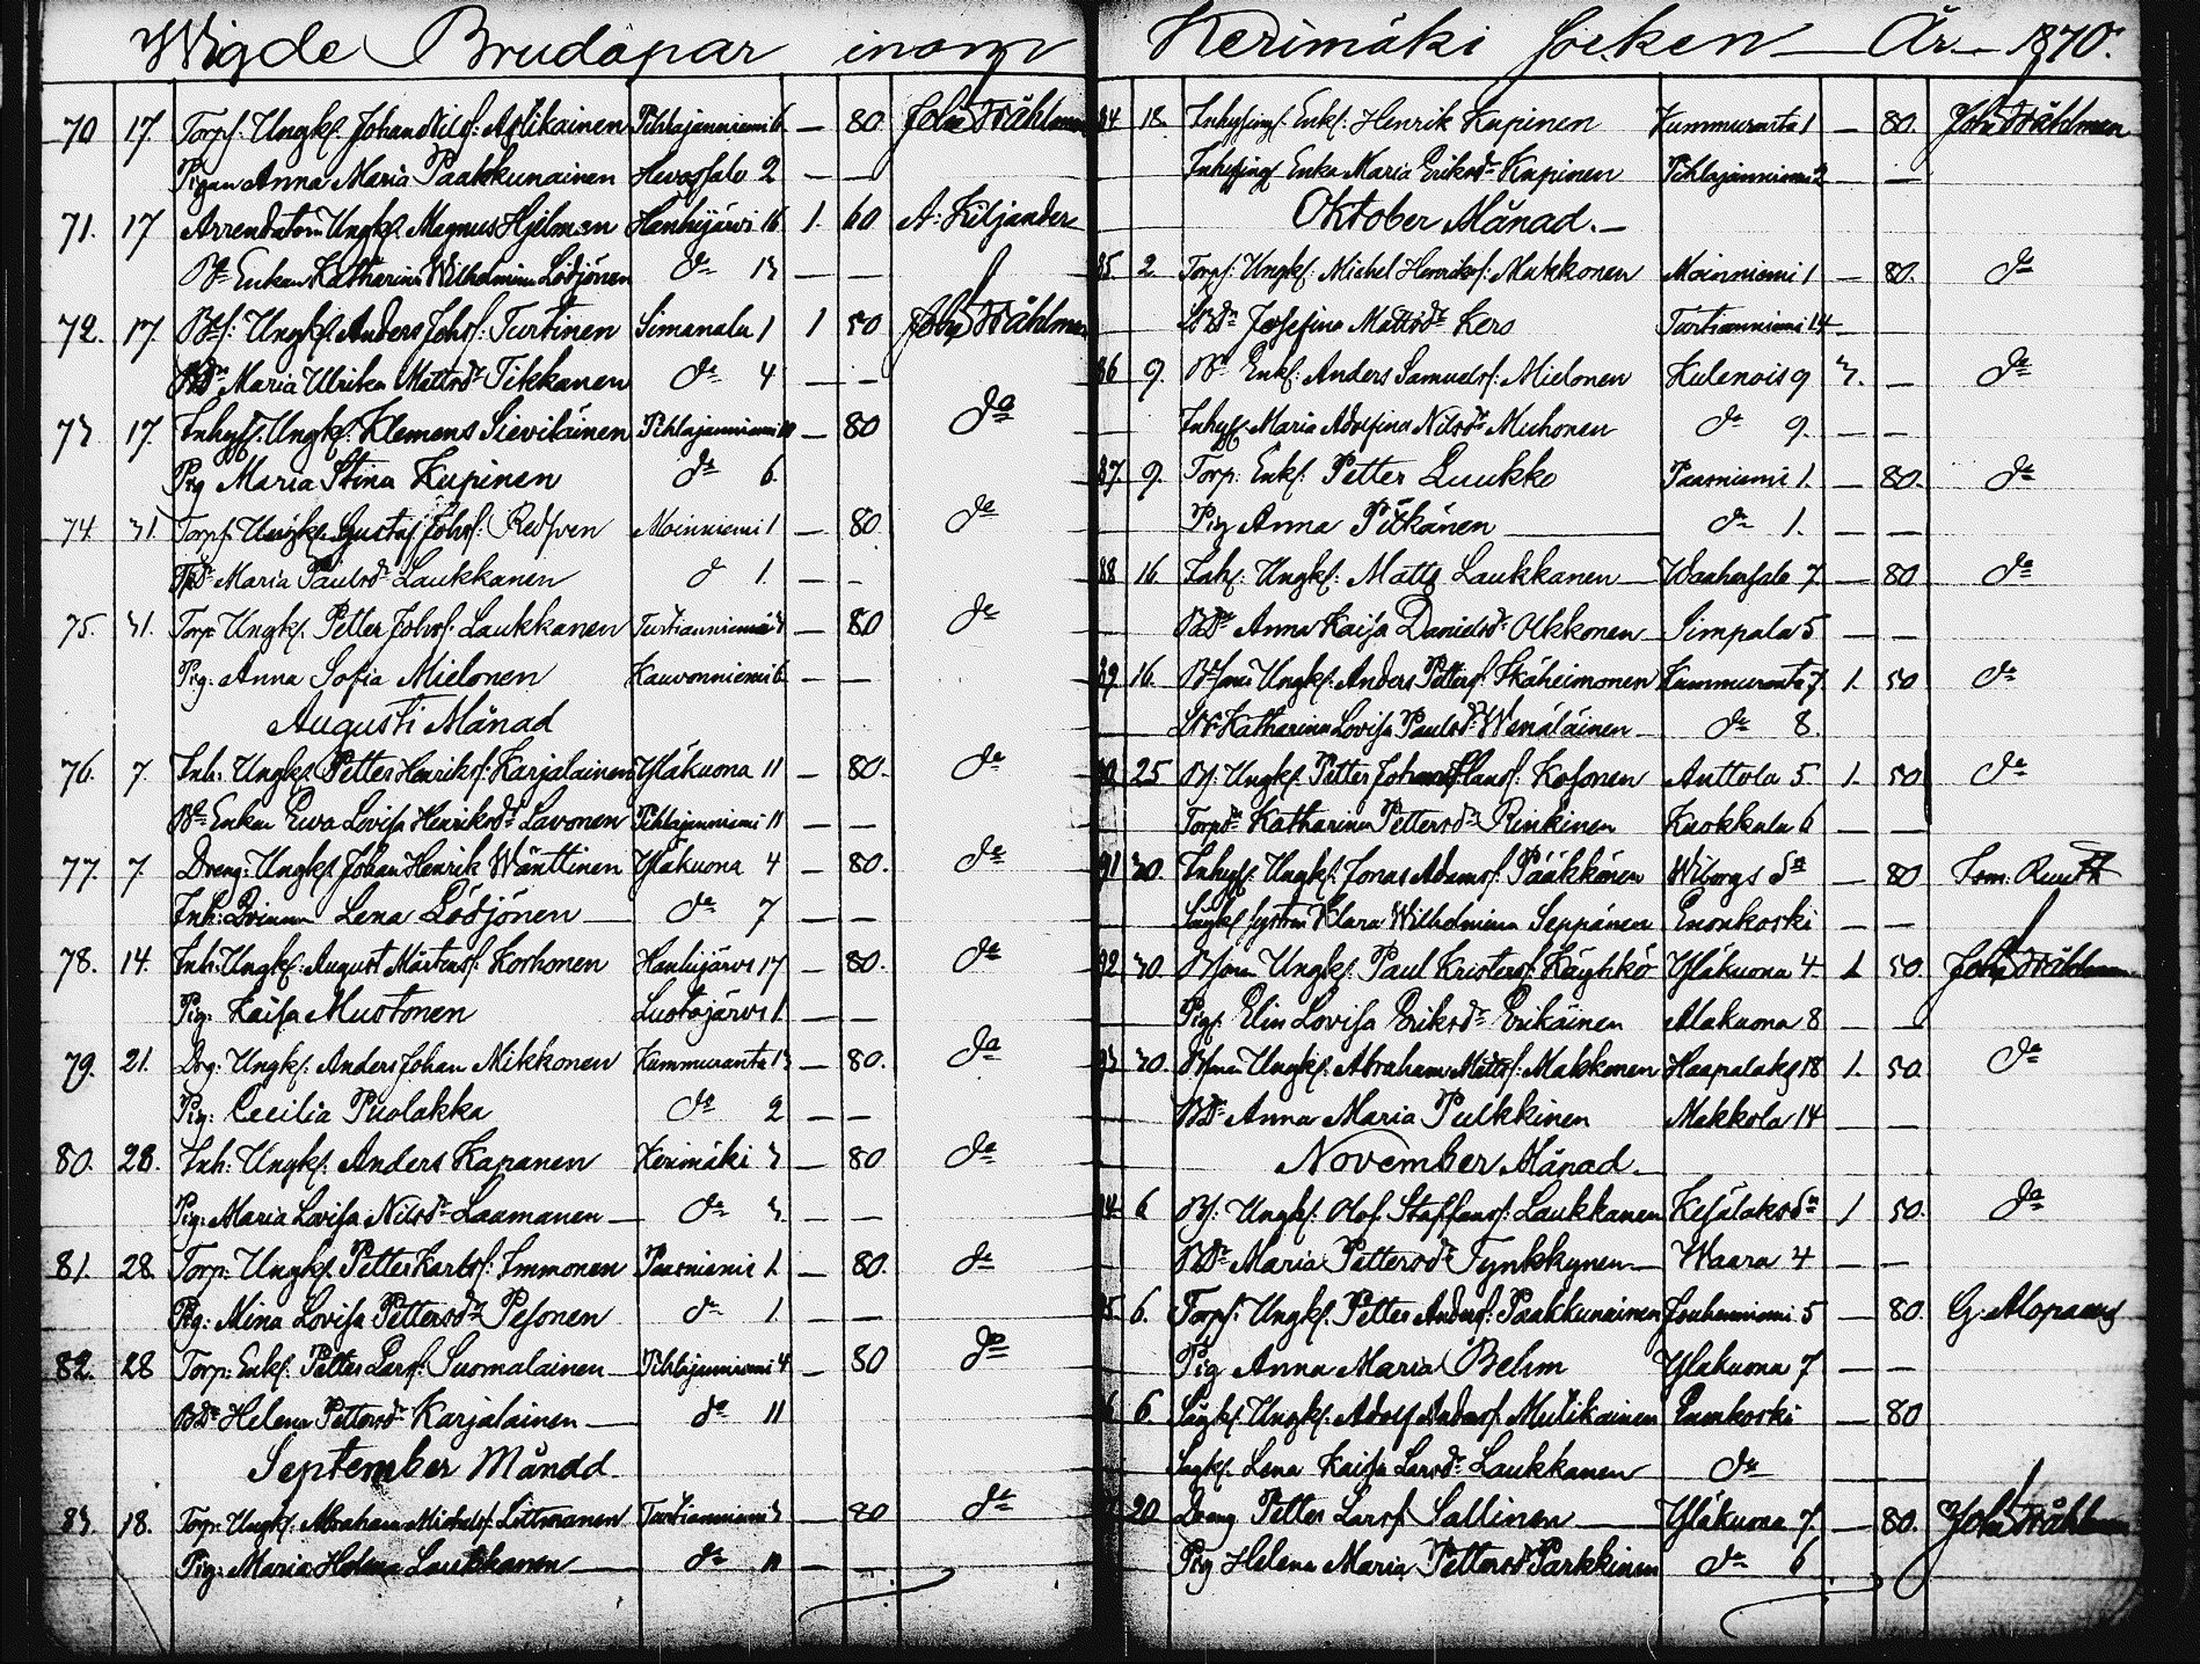 Wigde Brudapar inom Kerimäki Socken År 1870.
70 17. Torpf. Ungkf. Johan Nilsf. Asikainen Pihlajanniemi 6 — 80 Joh. Wåhlman
Pigan Anna Maria Paakkunainen Hevossalo 2 — —
71. 17 Arrendatorn Ungkf. Magnus Hjelman Hanhijärvi 16 1. 60 A. Kiljander
Bde Enkan Katharina Wilhelmina Lödjönen da 13 — —
72. 17. Bdef. Ungkf. Anders Johsf. Turtinen Simanala 1 1 50 Joh. Wåhlman
BDr Maria Ulrika Mattsdr Tikkanen da 4 — —
73 17. Inhyf. Ungkf. Klemens Sieviläinen Pihlajanniemi — 80 da
Pig Maria Stina Kupinen da 6.
74 31. Torpf. Ungkf. Gustaf Johsf. Redsven Moinniemi 1 — 80 da
TDr Maria Paulsdr Laukkanen d 1. — —
75. 31. Torp. Ungkf. Petter Johsf. Laukkanen Turtianniemi 3 — 80 da
Pig. Anna Sofia Mielonen Kauvonniemi 6 — —
Augusti Månad
76. 7. Inh. Ungkf. Petter Henriksf. Karjalainen Yläkuona 11 — 80. da
Bde Enkan Ewa Lovisa Henriksdr Lavonen Pihlajanniemi 11 — —
77. 7. Dreng. Ungkf. Johan Henrik Wänttinen Yläkuona 4 — 80. da
Inh. Qvinnan Lena Lödjönen — da 7 — —
78. 14. Inh. Ungkf. August Mårtensf. Korhonen Hanhijärvi 17 — 80. da
Pig. Kaisa Mustonen Lustojärvi 1. — —
79. 21. Drg. Ungkf. Anders Johan Mikkonen Kummuranta 13 — 80. da
Pig: Cecilia Puolakka da 2 — —
80. 28. Inh. Ungkf. Anders Kapanen Kerimäki 3 — 80 da
Pig: Maria Lovisa Nilsdr Laamanen — da 3. — —
81. 28. Torp: Ungkf. Petter Karlsf. Immonen Paasniemi 1. — 80. da
Pig: Mina Lovisa Pettersdr Pesonen da 1. — —
82. 28 Torp: Enkf. Petter Larsf. Suomalainen — Pihlajanniemi 4 — 80 da
BDr Helena Pettersdr Karjalainen — da 11
September Månad
83. 18. Torp. Ungkf. Abraham Michelsf. Littmanen Turtianniemi 3 — 80 da
Pig: Maria Helena Laukkanen — da 11 — —
84 18. Inhysing. Enkf. Henrik Kupinen Kummuranta 1 — 80. Joh. Wåhlman
Inhysing Enka Maria Eriksdr Kupinen Pihlajanniemi 2 — —
Oktober Månad. —
85 2 Torpf. Ungkf. Michel Henriksf. Makkonen Moinniemi 1 — 80. da
Josefina Mattsdr Kero Turtianniemi 14 — —
86 9. Bde Enkf. Anders Samuelsf. Mielonen Kulenois 9 3. — da
Inhyf. Maria Adolfina Nilsdr Muhonen da 9. — —
87. 9. Torp. Enkf. Petter Luukko Paasniemi 1. — 80. da
Pig Anna Pitkänen — da 1. — —
88 16 Inh. Ungkf. Matts Laukkanen — Waahersalo 7 — 80 da
BDr Anna Kaisa Danielsdr Olkkonen — Simpala 5 — —
89. 16. Ungkf. Anders Pettersf. Ikäheimonen Kummuranta 7 1. 50 da
Katharina Lovisa Paulsdr Wenäläinen — da 8.
90 25 Bf. Ungkf. Petter Kosonen Anttola 5 1. 50 da
Torpdr Katharina Pettersdr Rinkinen Kuokkala 6 — —
91 30. Inhyf. Ungkf. Jonas Adamsf. Pääkkönen Wiborgs Sn — 80
Klara Wilhelmina Seppänen Enonkoski — —
92 30. Ungkf. Paul Kristersf. Käyhkö Yläkuona 4. 1 50. Joh. Wåhlman
Pig. Elin Lovisa Eriksdr Erikäinen Alakuona 8 — —
93 30. Ungkf. Abraham Mattsf. Makkonen Haapalaks 18 1. 50. da
BDr Anna Maria Pulkkinen Makkola 14 — —
November Månad —
94 6 Bf. Ungkf. Olof Staffansf. Laukkanen Kesälaks Sn 1 50. da
BDr Maria Pettersdr Tynkkynen — Waara 4 — —
95. 6. Torpf. Ungkf. Petter Andersf. Paakkunainen Jouhenniemi 5 — 80. G. Alopaeus
Pig Anna Maria Behm Yläkuona 7 — —
96 6. Ungkf. Adolf Andersf. Mutikainen Enonkoski — 80
Lena Kaisa Larsdr Laukkanen da —
20 Dreng Petter Larsf. Sallinen — Yläkuona 7. — 80. Joh. Wåhlman
Pig Helena Maria Pettersdr Parkkinen da 6